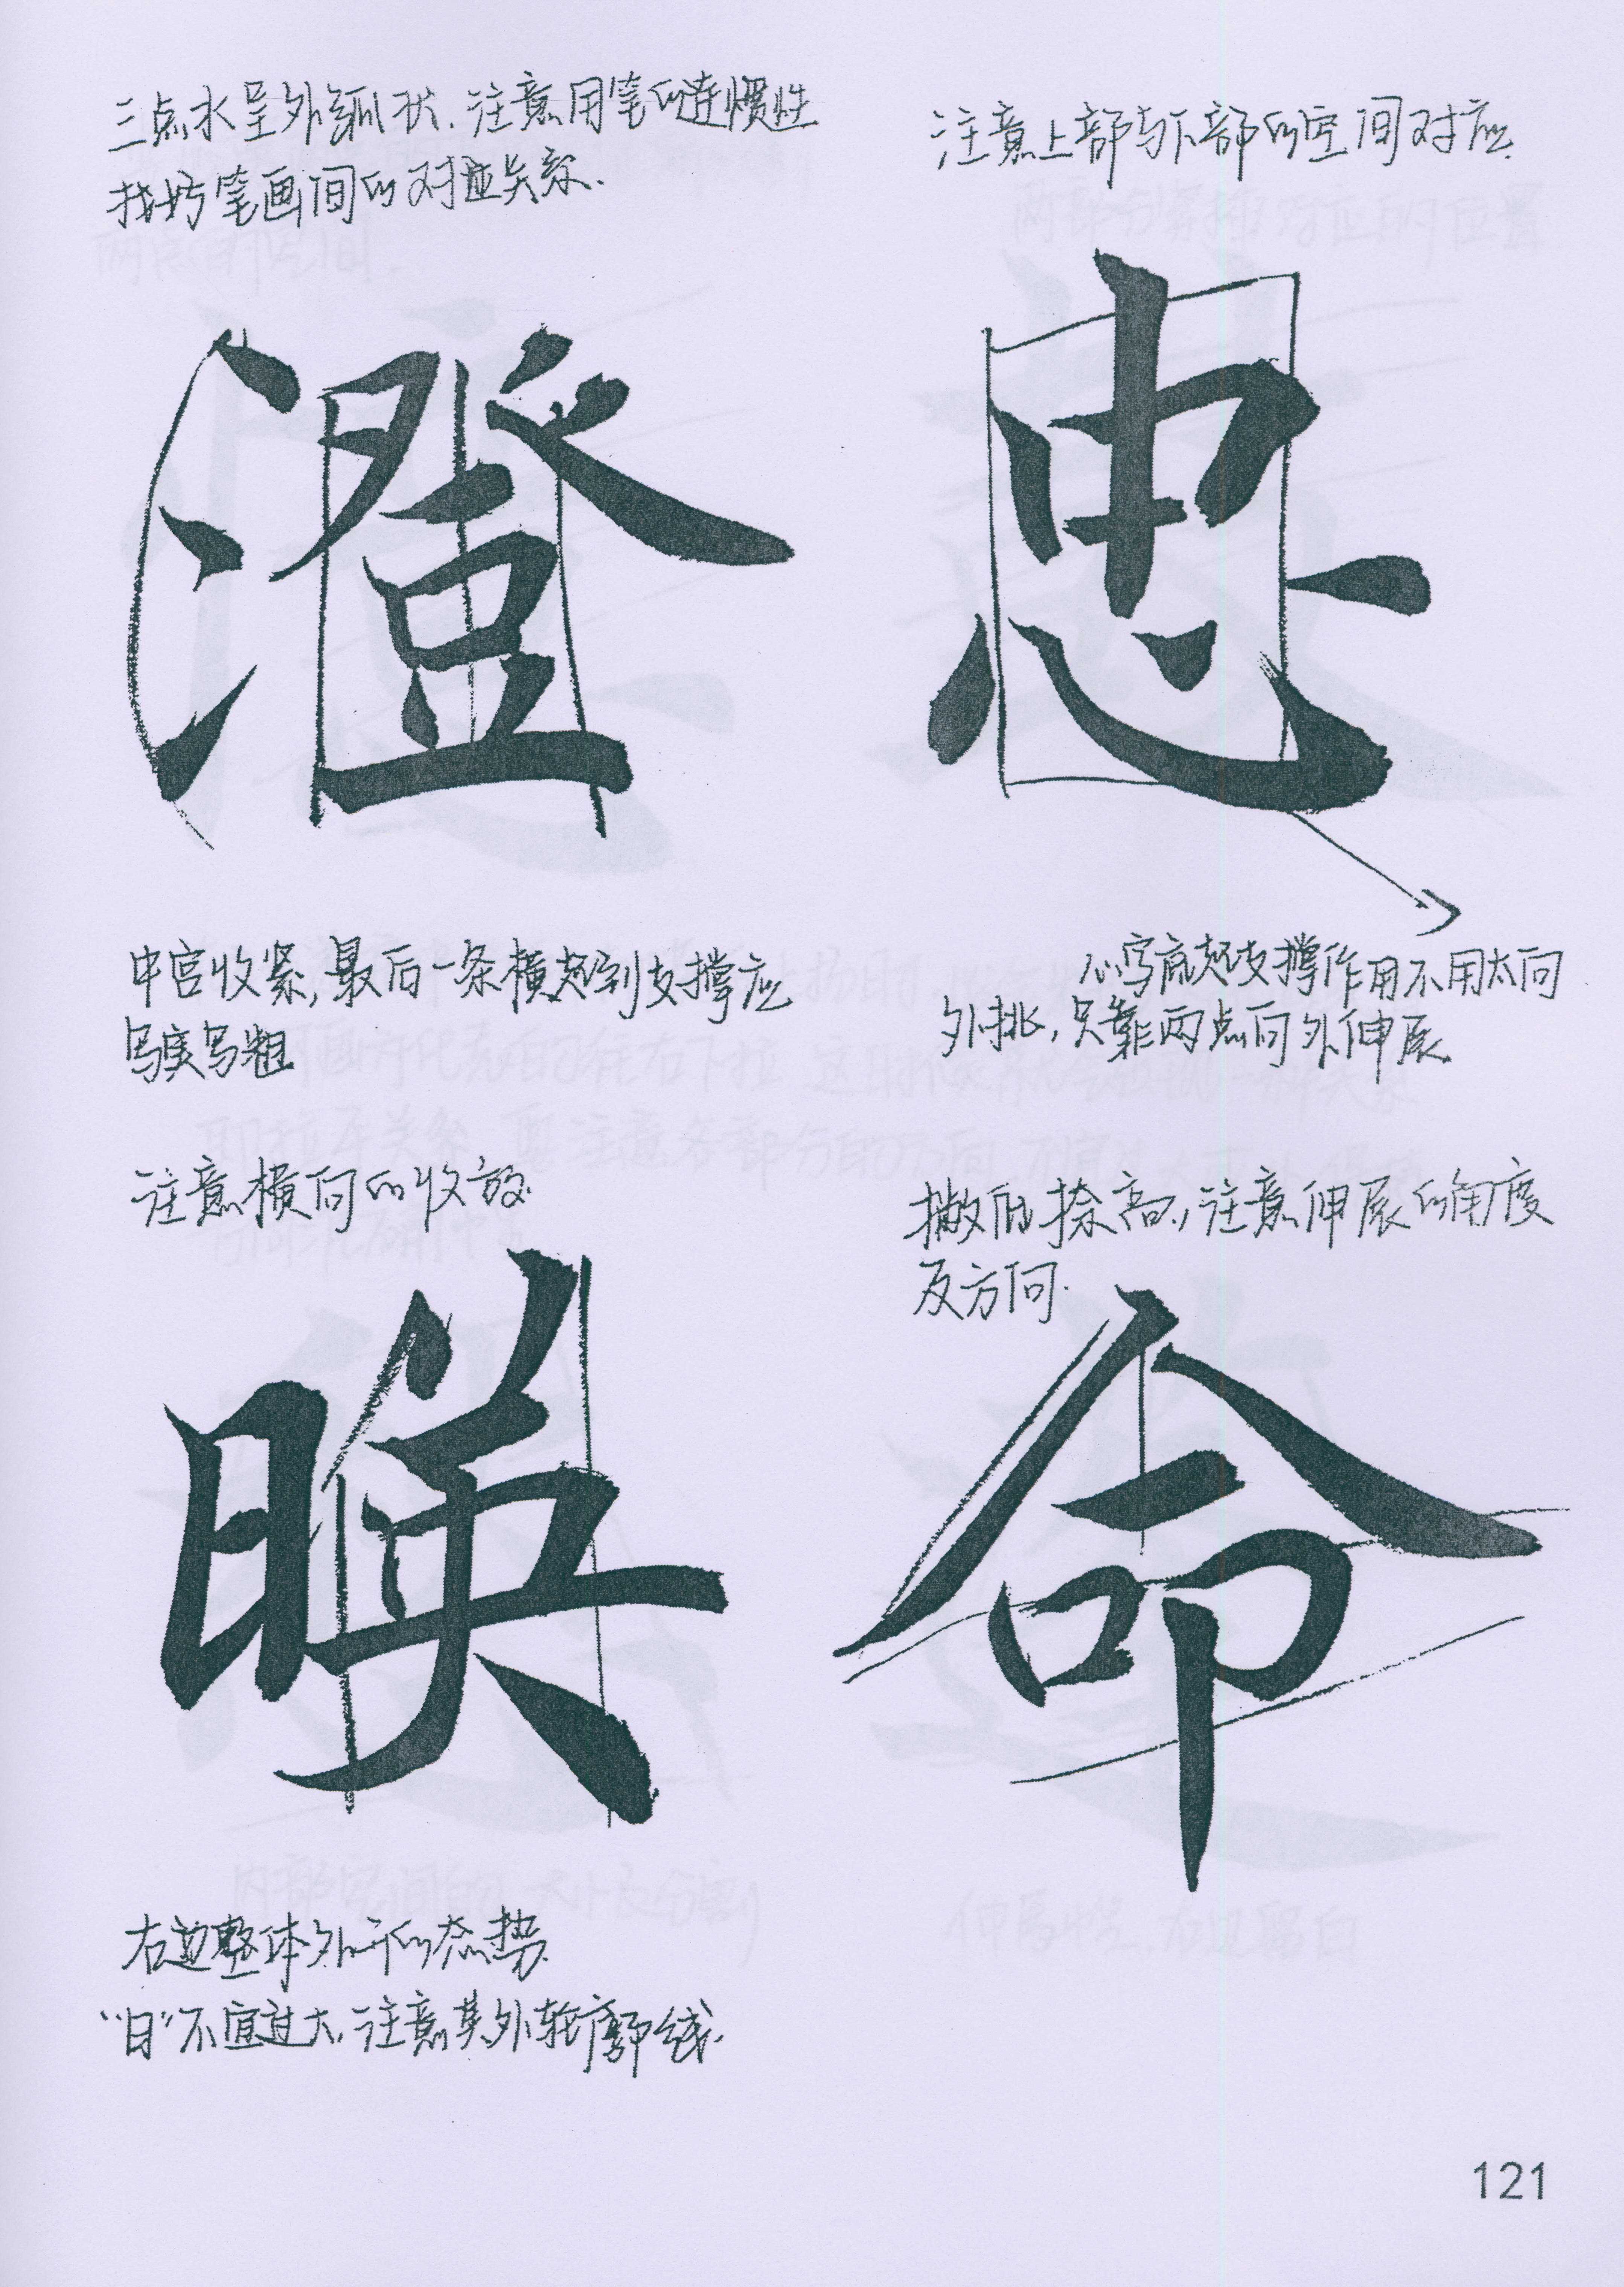 三点水呈外弧状.注意用笔的连惯性
找好笔画间的对应关系.
澄
中宫收紧,最后一条横起到支撑应
写实写粗
注意上部与下部的空间对应.
忠
心写底起支撑作用不用太向
外挑,只靠两点向外伸展.
注意横向的收放.
映
右边整体外开的态势.
“日”不宜过大,注意其外轮廓线.
撇低捺高,注意伸展的角度
及方向.
命
121